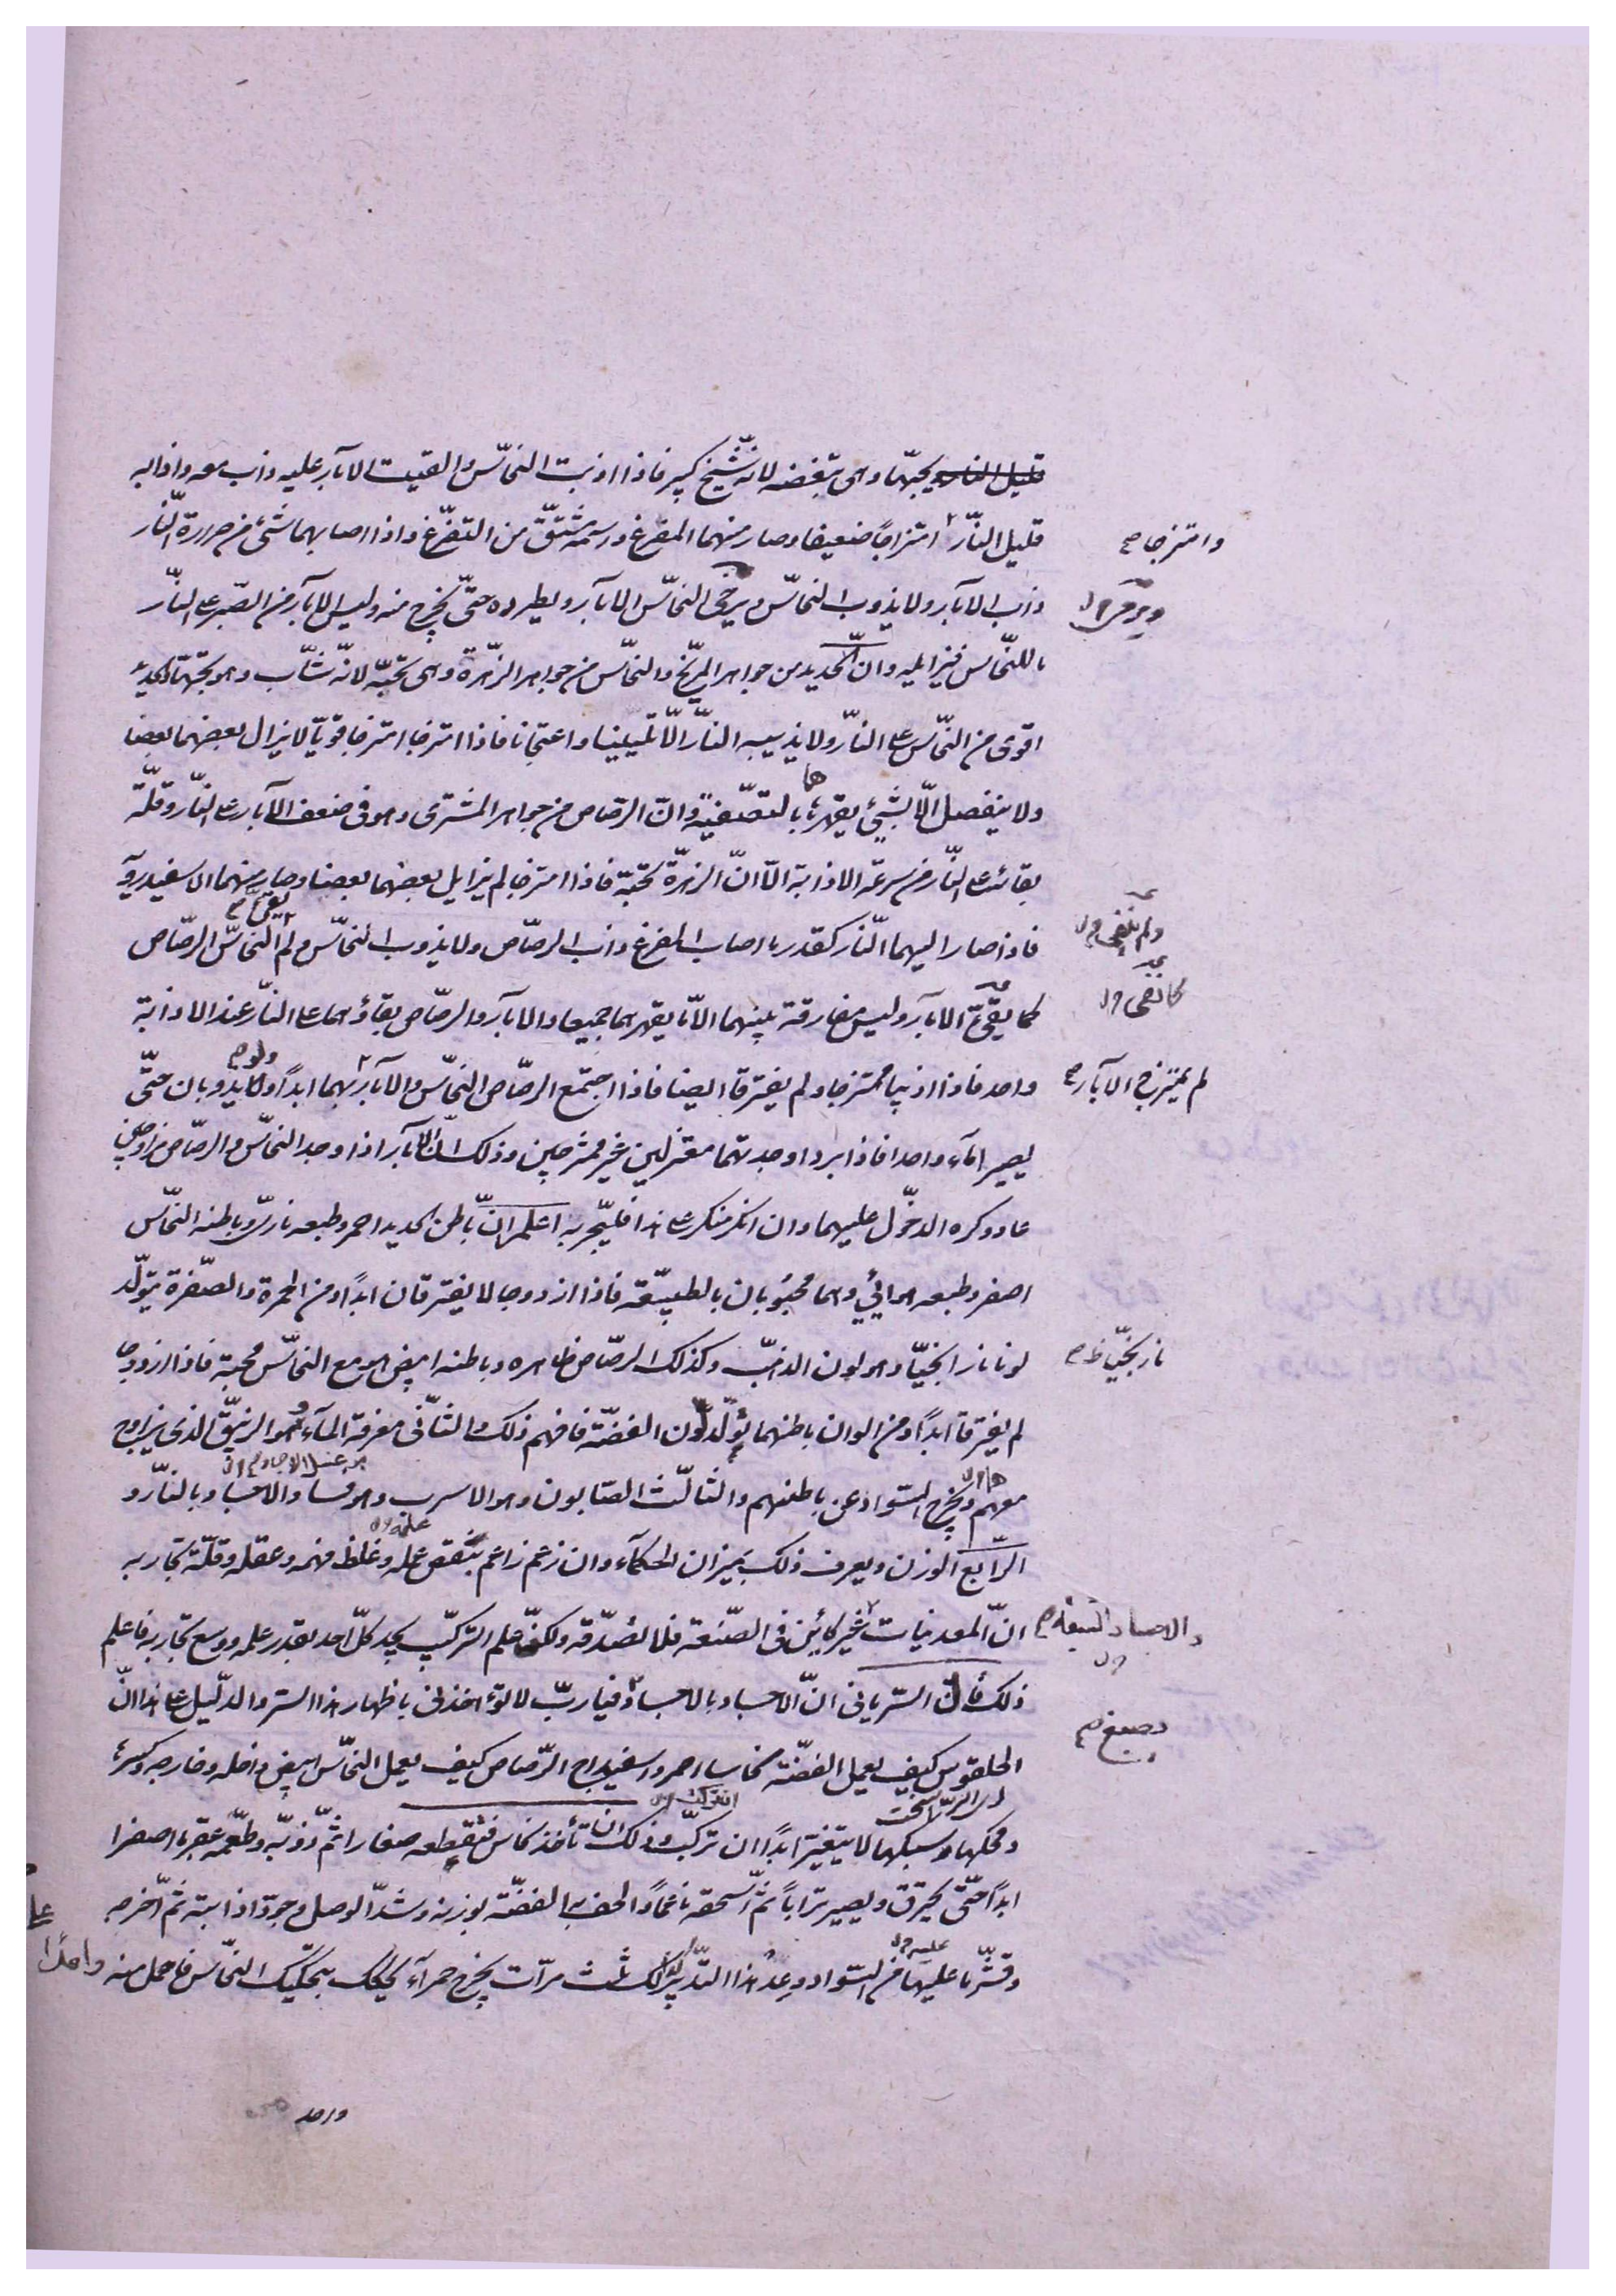 قليل النار يحبها وهى تبغضه لانه شيخ كبير فاذا اذبت النحاس والقيت الابار عليه ذاب معه واذابه
قليل النار امتزاجًا ضعيفا وصار منهما المفرغ ورسمه مشتق من التفرغ واذا اصابهما شئ من حرارة النار
وامتزجا صح
ذاب الابار ولا يذوب النحاس ويرخى النحاس الابار ويطرده حتى يخرج منه وليس للابار من الصبر على النار
ما للنحاس فيزايله وان الحديد من جواهر المريخ والنحاس من جواهر الزهرة وهى تحبه لانه شاب وهو يحبها والحديد
اقوى من النحاس على النار ولا يذيبه النار الا تليينا واعتجانا فاذا امتزجا امتزجا قويا لا يزال بعضهما بعضا
ولا ينفصل الا بشئ يقهرهما بالتصفية وان الرصاص من جواهر المشترى وهو فى ضعف الابار على النار وقلة
بقائه على النار من سرعة الاذابة الا ان الزهرة تحبه فاذا امتزجا لم يزايل بعضهما بعضا وصار منهما الاسفيدرويه
فاذا صار اليهما النار كقدر ما اصاب المفرغ ذاب الرصاص ولا يذوب النحاس ولم النحاس الرصاص
كما الابار وليس مفارقة بينهما الا ما يقهرهما جميعا والابار والرصاص بقاؤهما على النار عند الاذابة
واحد فاذا اذيبا امتزجا ولم يفترقا ايضا فاذا اجتمع الرصاص النحاس والابار بهما ابدًا ولو يذوبان حتى
لم يمتزج الابار صح
يصيرا ماء واحدا فاذا بردا وجدتهما معتزلين غير ممتزجين وذلك ان الابار اذا وجد النحاس والرصاص مزاوجين
عاد وكره الدخول عليهما وان انكر منكر على هذا فليجربه اعلم ان باطن الحديد احمر وطبعه نارى وباطنه النحاس
اصفر وطبعه هوائى وهما محبوبان بالطبيعة فاذا ازدوجا لا يفترقان ابدًا ومن الحمرة والصفرة يتولد
لونا نارانجيا وهو لون الذهب وكذلك الرصاص ظاهره وباطنه ابيض وهو مع النحاس محبة فاذا ازدوجا
نارنجيا ظ صح
لم يفترقا ابدًا ومن الوان باطنهما يتولد لون الفضة فافهم ذلك والثانى معرفة الماء وهو الزيبق الذى يزاوج
معهم ويخرج السواد عن باطنهم والثالث الصابون وهو الاسرب وهو فساد الاجساد بالنار و
الرابع الوزن ويعرف ذلك بميزان الحكماء وان زعم زاعم بنقص عمله وغلظ فهمه وعقله وقلة تجاربه
ان المعدنيات غير كائن فى الصنعة فلا تصدقه ولكن علم التركيب يجد كل احد بقدر علمه ووسع تجاربه فاعلم
ذلك قال السريانى ان الاجساد بالاجساد فيا رب لا تؤاخذنى باظهار هذا السر والدليل على هذا ان
الحلقوس كيف يعمل الفضة نحاسا احمر واسفيداج الرصاص كيف يعمل النحاس ابيض داخله وخارجه وكسره
وصبغ صح
ومحكها وسبكها لا يتغير ابدًا ان تركب وذلك ان تأخذ نحاس فتقطعه صغارا ثم ذوبه وطعمه عقربا اصفرا
ابدًا حتى يحترق ويصير ترابًا ثم اسحقه ناعمًا والحف به الفضة بوزنه وشد الوصل وجود اذابته ثم اخرجه
وقشر ما عليها من السواد وعد هذا التدبير كذلك ثلث مرات يخرج حمراء يحكك بتحكيك النحاس فاحمل منه
واحد